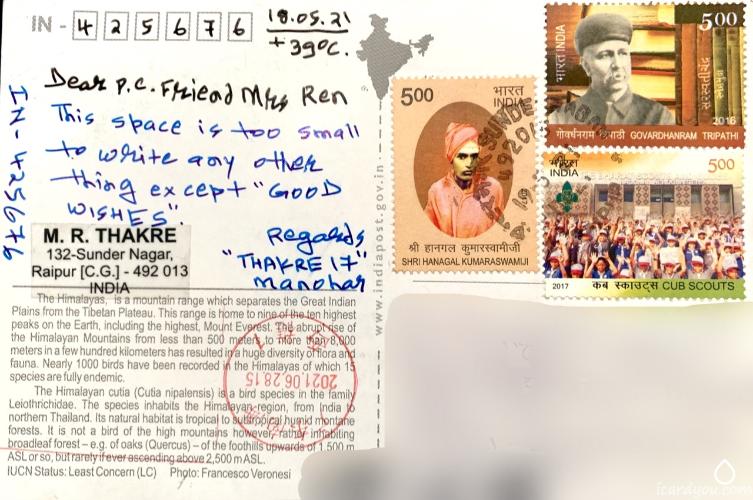 IN - 4 2 5 6 7 6
18.05.21
+39°C.
Dear P.C. Friend Mrs Ren
This space is too small
to write any other
thing except "GOOD
WISHES".
Regards
"THAKRE 17"
Manohar
IN-425676
M. R. THAKRE
132-Sunder Nagar,
Raipur [C.G.] - 492 013
INDIA
The Himalayas, is a mountain range which separates the Great Indian
Plains from the Tibetan Plateau. This range is home to nine of the ten highest
peaks on the Earth, including the highest, Mount Everest. The abrupt rise of
the Himalayan Mountains from less than 500 meters to more than 8,000
meters in a few hundred kilometers has resulted in a huge diversity of flora and
fauna. Nearly 1000 birds have been recorded in the Himalayas of which 15
species are fully endemic.
The Himalayan cutia (Cutia nipalensis) is a bird species in the family
Leiothrichidae. The species inhabits the Himalayan region, from India to
northern Thailand. Its natural habitat is tropical to subtropical humid montane
forests. It is not a bird of the high mountains however, rather inhabiting
broadleaf forest – e.g. of oaks (Quercus) - of the foothills upwards of 1,500 m
ASL or so, but rarely if ever ascending above 2,500 m ASL.
IUCN Status: Least Concern (LC) Photo: Francesco Veronesi
2021.06.28.15
www.indiapost.gov.in
500
भारत
INDIA
श्री हानगल कुमारस्वामीजी
SHRI HANAGAL KUMARASWAMIJI
भारत INDIA
500
सरस्वतीचंद्र
2016
गोवर्धनराम त्रिपाठी GOVARDHANRAM TRIPATHI
भारत
INDIA
500
2017
कब स्काउट्स CUB SCOUTS
icardyou.com